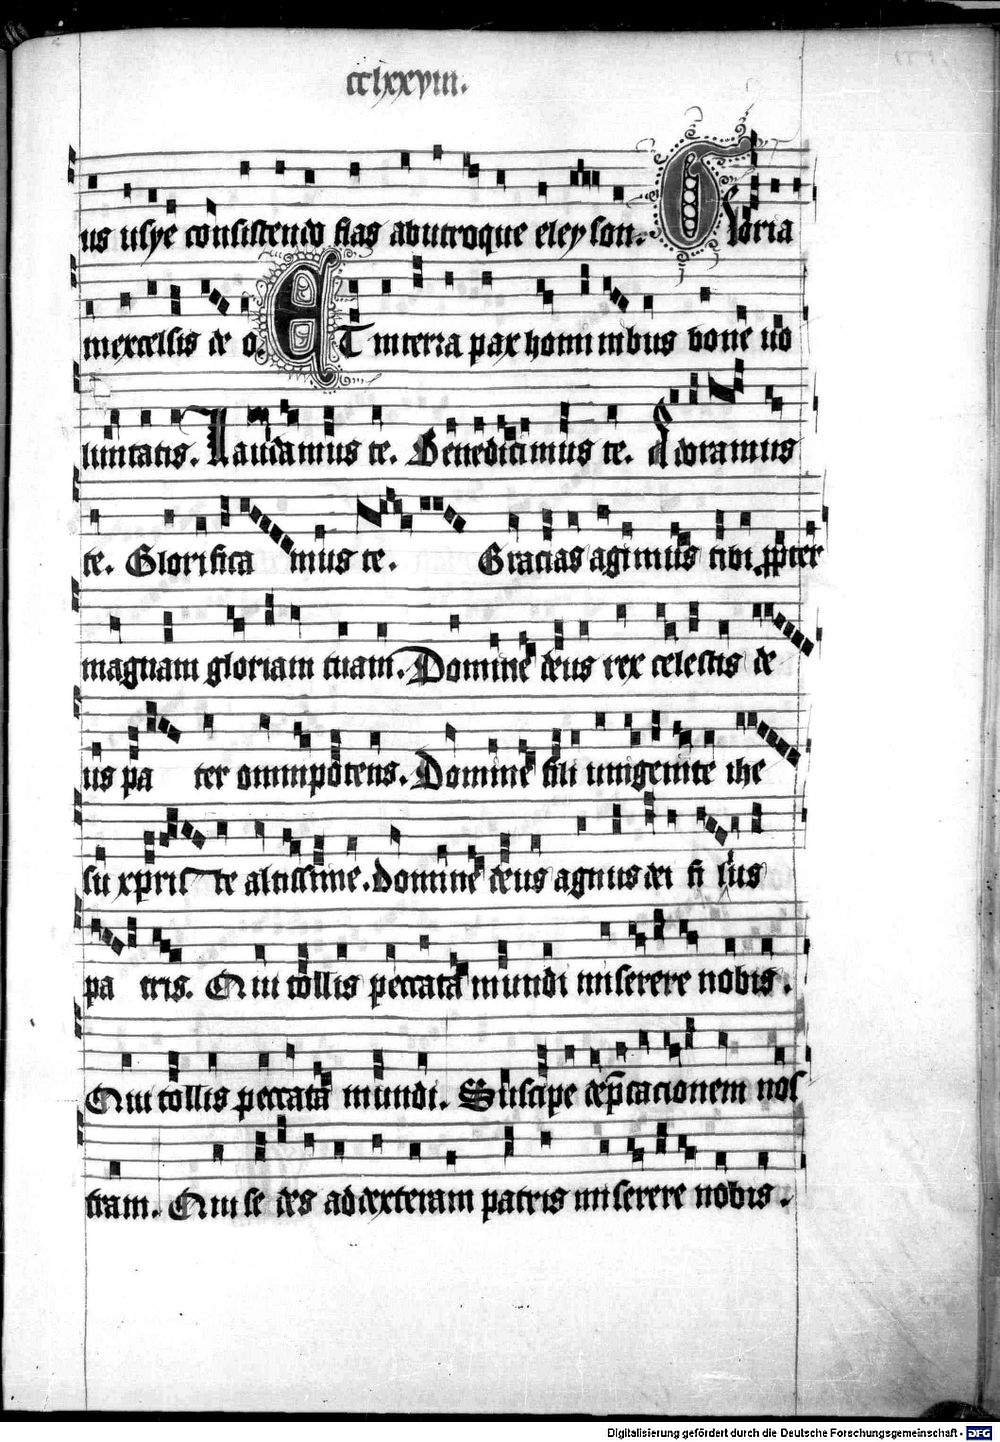 cclxxviii.
us usye consistendo flas ab utroque eleyson. Gloria
in excelsis de o. ET in terra pax homi nibus bone uo
luntatis. Laudamus te. Benedicimus te. Adoramus
te. Glorifica mus te. Gracias agimus tibi ppter
magnam gloriam tuam. Domine deus rex celestis de
us pa ter omnipotens. Domine fili unigenite ihe
su xpristе altissime. Domine deus agnus dei fi lius
pa tris. Qui tollis peccata mundi miserere nobis.
Qui tollis peccata mundi. Suscipe dep̄cacionem nos
tram. Qui se des ad dexteram patris miserere nobis.
Digitalisierung gefördert durch die Deutsche Forschungsgemeinschaft - DFG